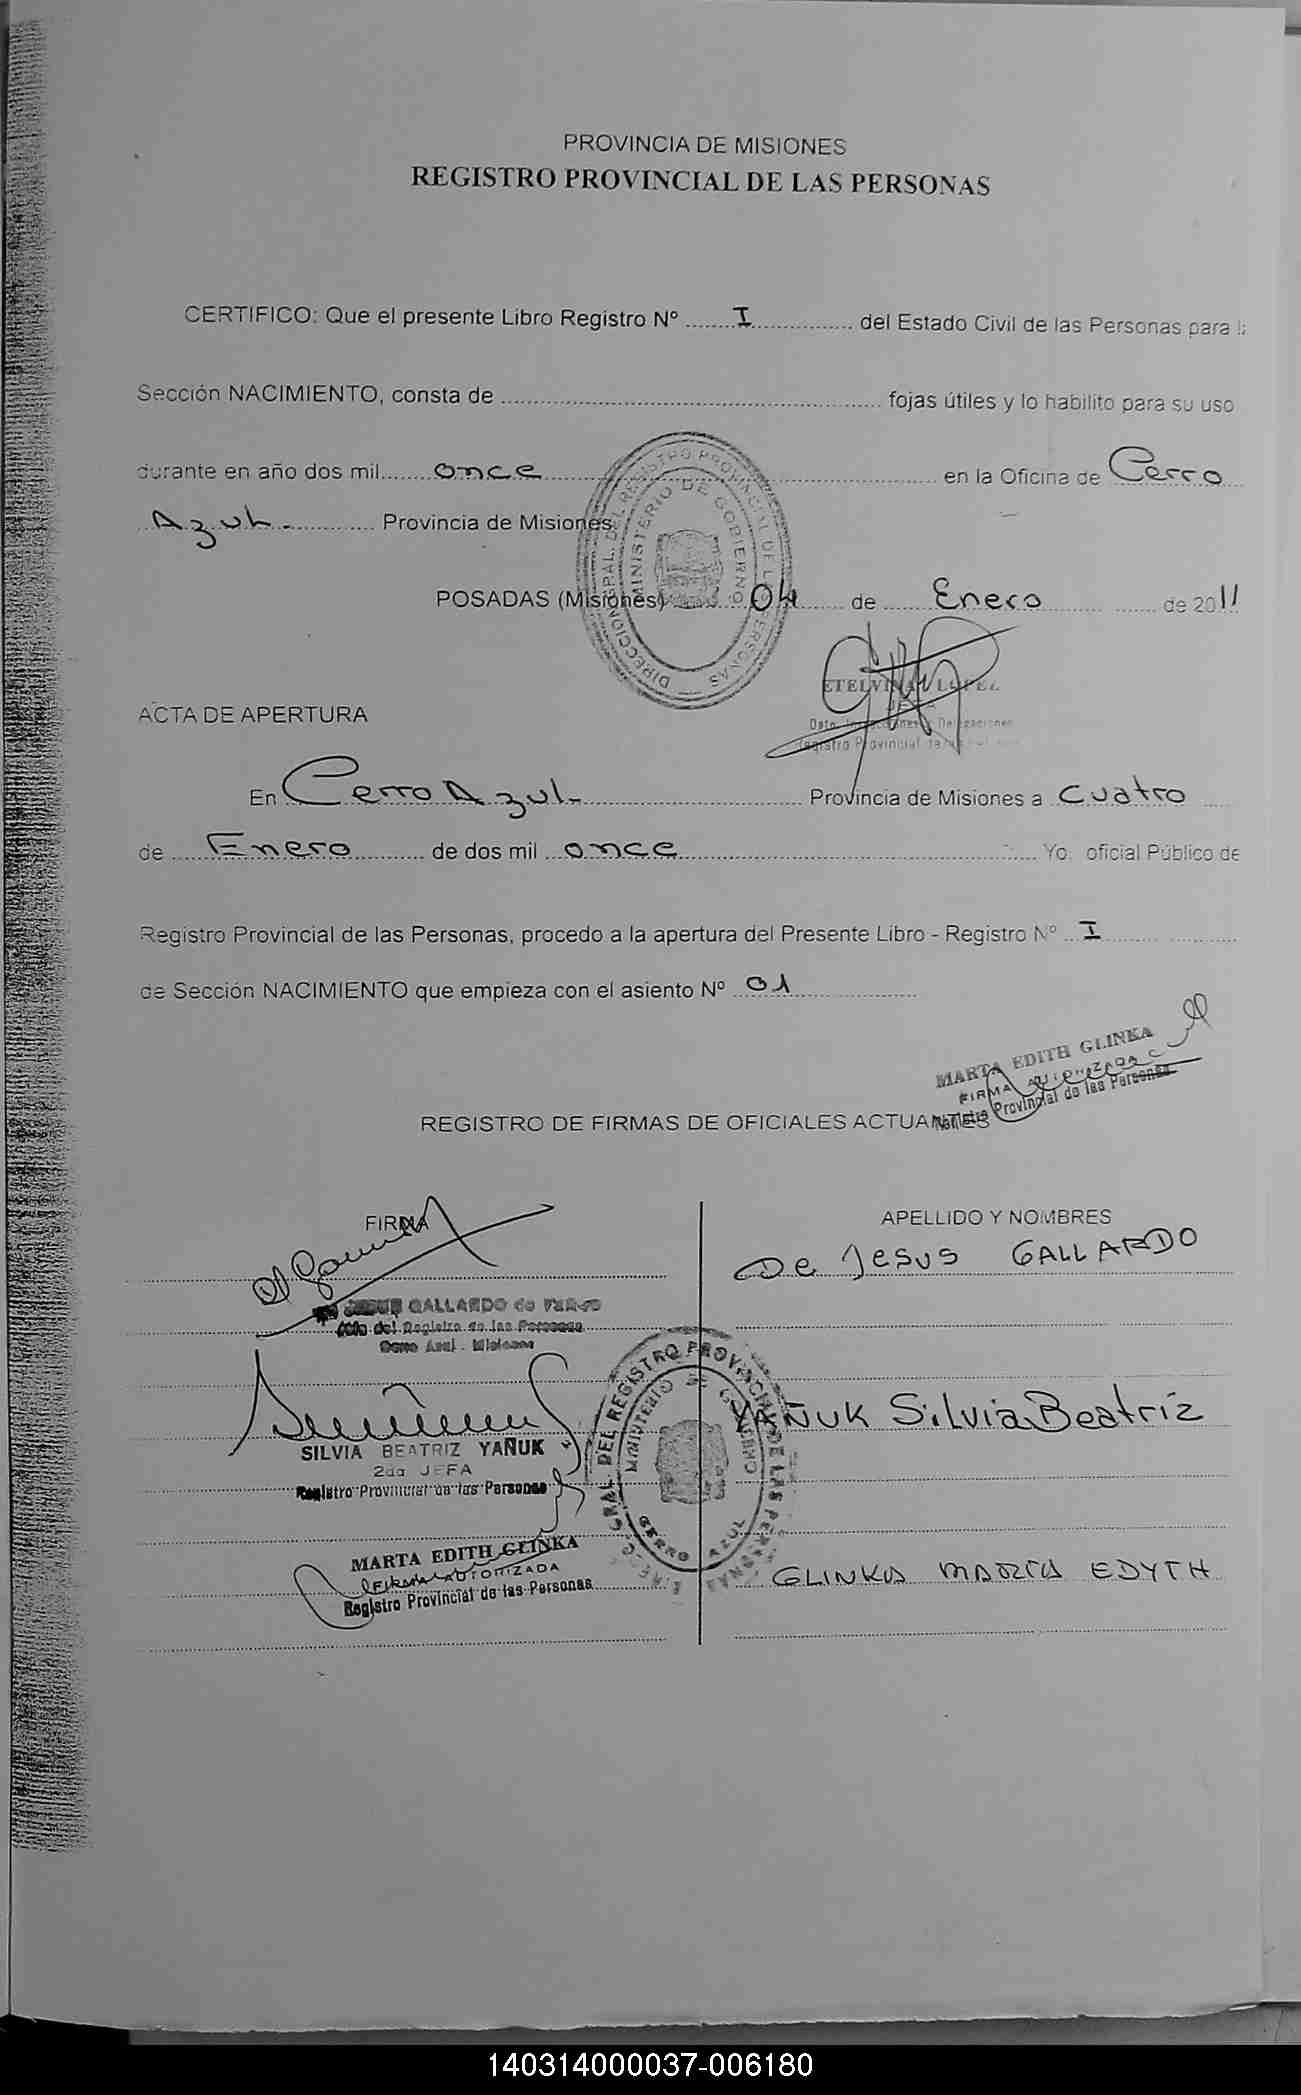 PROVINCIA DE MISIONES
REGISTRO PROVINCIAL DE LAS PERSONAS
CERTIFICO: Que el presente Libro Registro Nº I del Estado Civil de las Personas para
Sección NACIMIENTO, consta de fojas útiles y lo habilito para su uso
durante en año dos mil once en la Oficina de Cerro
Azul - Provincia de Misiones
POSADAS (Misiones) 04 de Enero de 2011
DIRECCION GRAL. DEL REGISTRO PROVINCIAL DE LAS PERSONAS
MINISTERIO DE GOBIERNO
ETELVINA LOPEZ
JEFA
Registro Provincial de las
ACTA DE APERTURA
En Cerro Azul - Provincia de Misiones a cuatro
de Enero de dos mil once Yo oficial Público de
Registro Provincial de las Personas, procedo a la apertura del Presente Libro - Registro Nº I
de Sección NACIMIENTO que empieza con el asiento Nº 01
MARTA EDITH GLINKA
FIRMA AUTORIZADA
Registro Provincial de las Personas
REGISTRO DE FIRMAS DE OFICIALES ACTUANTES
FIRMA APELLIDO Y NOMBRES
De Jesus GALLARDO
JESUS GALLARDO de
del Registro de las Personas
Cerro Azul - Misiones
YAÑUK Silvia Beatriz
SILVIA BEATRIZ YAÑUK
2da JEFA
Registro Provincial de las Personas
GRAL. DEL REGISTRO PROVINCIAL DE LAS PERSONAS
MINISTERIO DE GOBIERNO
CERRO AZUL
MARTA EDITH GLINKA
FIRMA AUTORIZADA
Registro Provincial de las Personas
GLINKA MARTA EDYTH
140314000037-006180